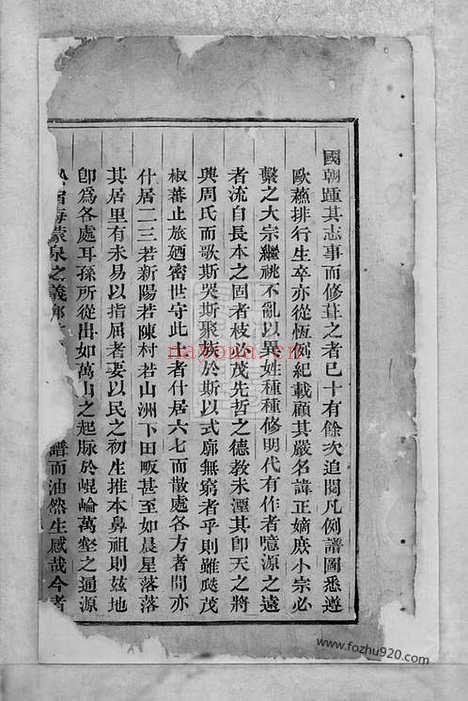 國朝踵其志事而修葺之者已十有餘次追閱凡例譜圖悉遵
歐蘇排行生卒亦從恆例紀載顧其嚴名諱正嫡庶小宗必
繫之大宗繼祧不亂以異姓種種修明代有作者噫源之遠
者流自長本之固者枝必茂先哲之德教未湮其卽天之將
興周氏而歌斯哭斯聚族於斯以式廓無窮者乎則雖瓞茂
椒蕃止旅廼密世守此土者什居六七而散處各方者間亦
什居二三若新陽若陳村若山洲下田畈甚至如晨星落落
其居里有未易以指屈者要以民之初生推本鼻祖則玆地
卽爲各處耳孫所從出如萬山之起脉於崐崘萬壑之通源
海蒙泉之義 譜而油然生感哉今者
nayona.cn
www.fozhu920.com